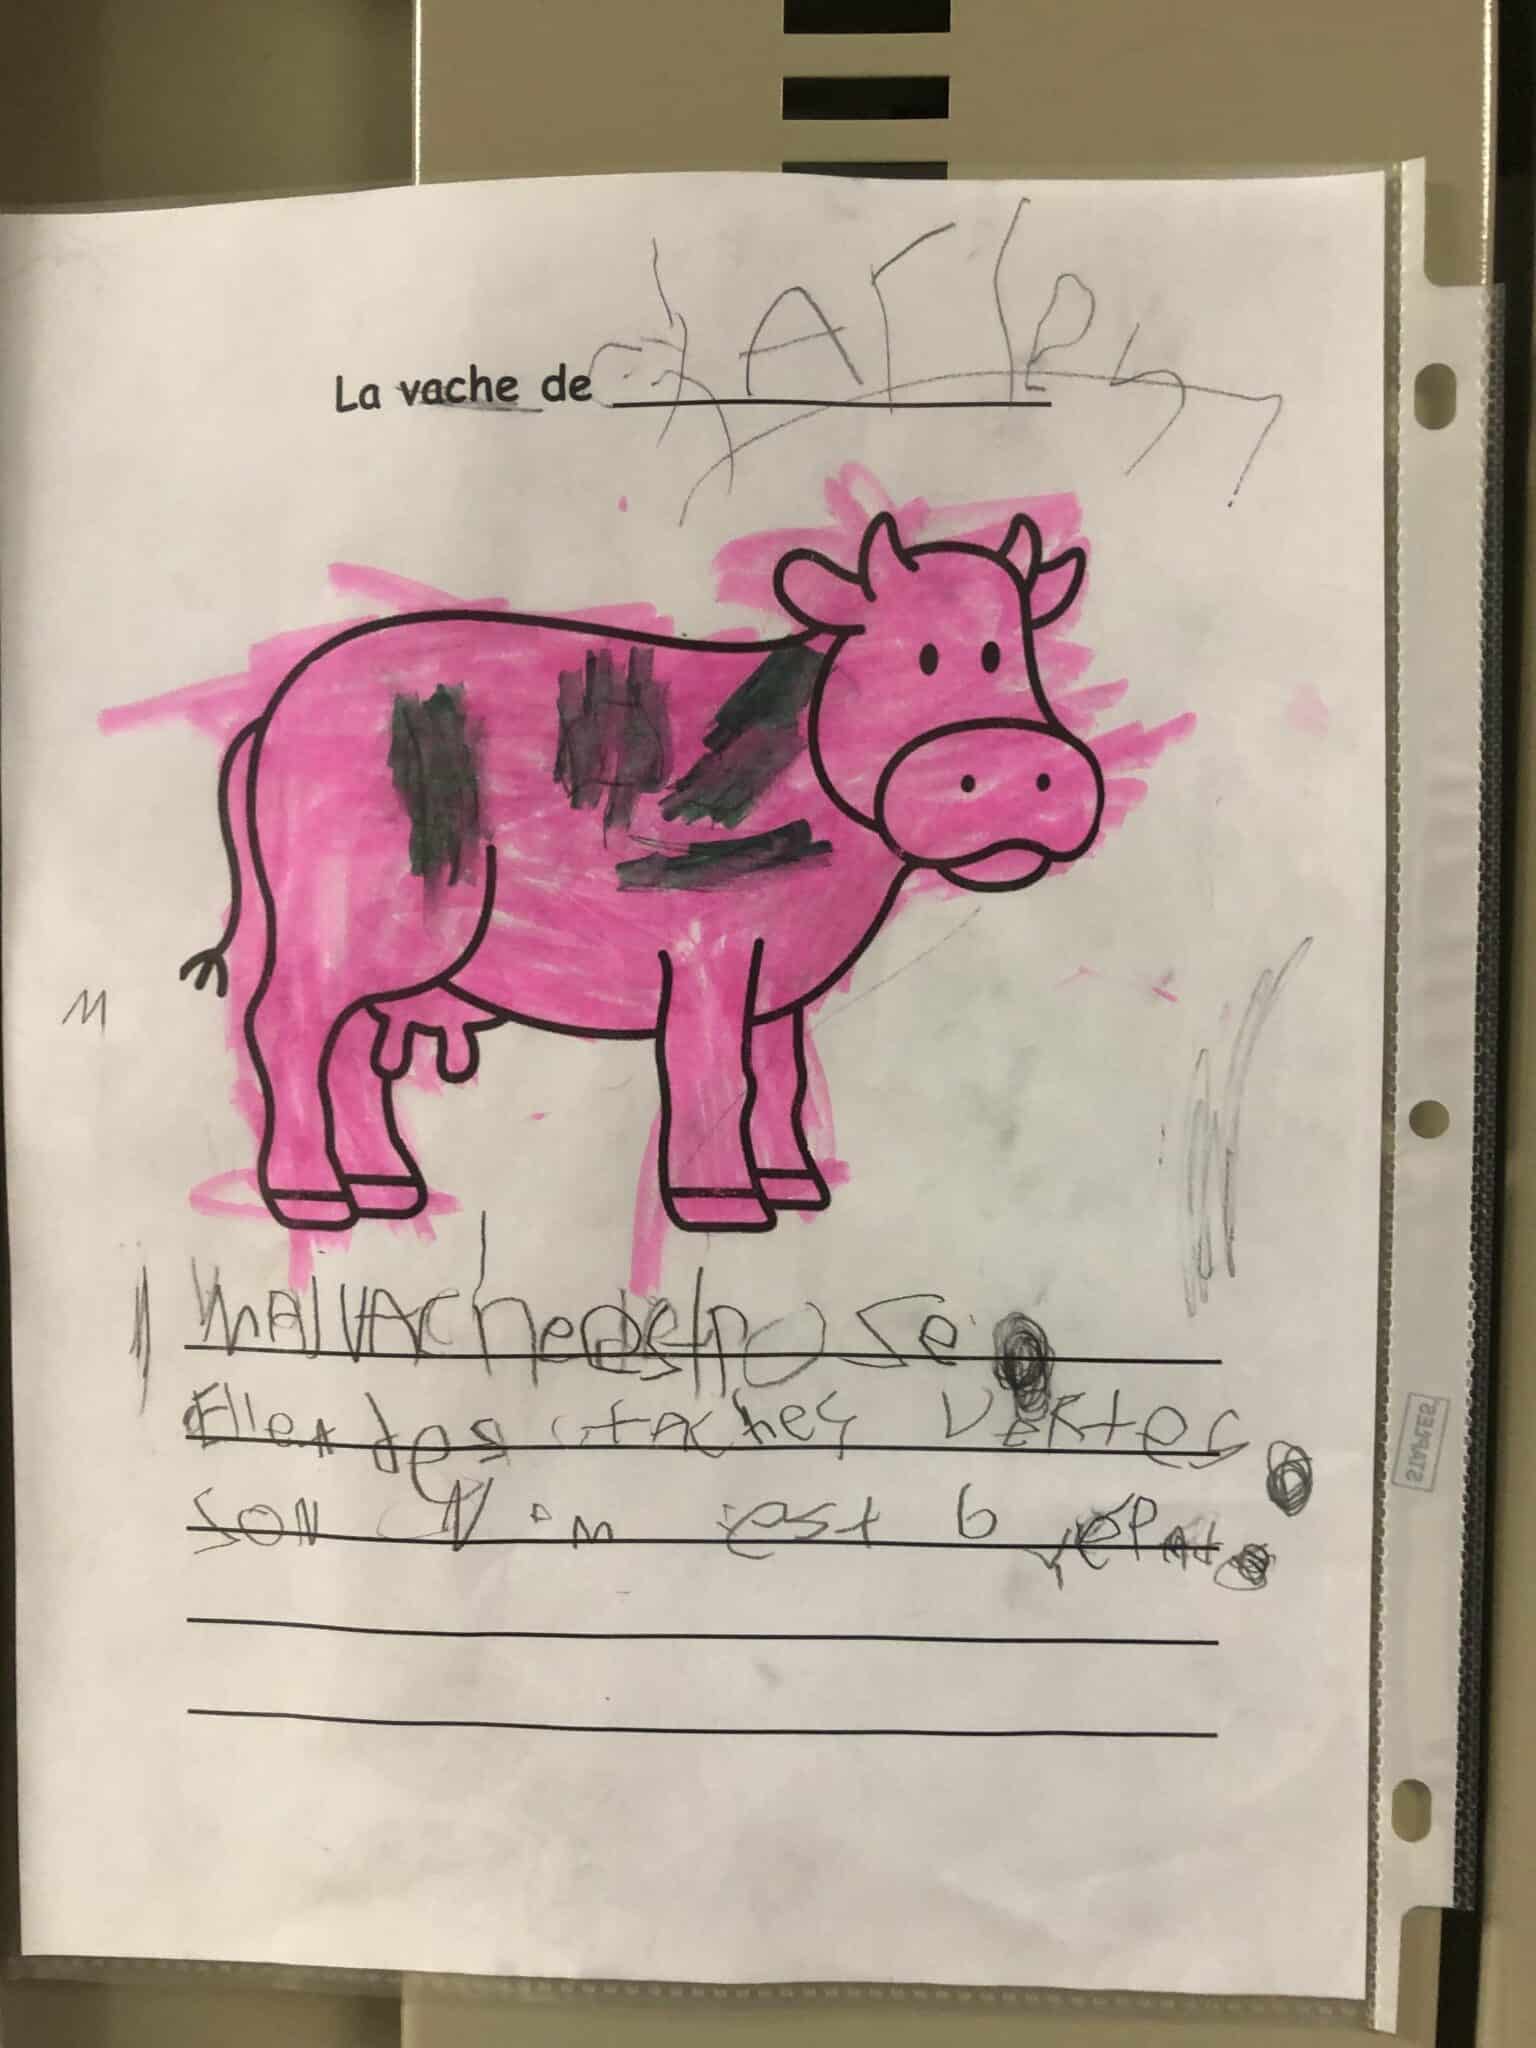 La vache de JArley
M
MA VACHe est rose.
Elle a des taches vertes.
SON Nom est
STAPLES